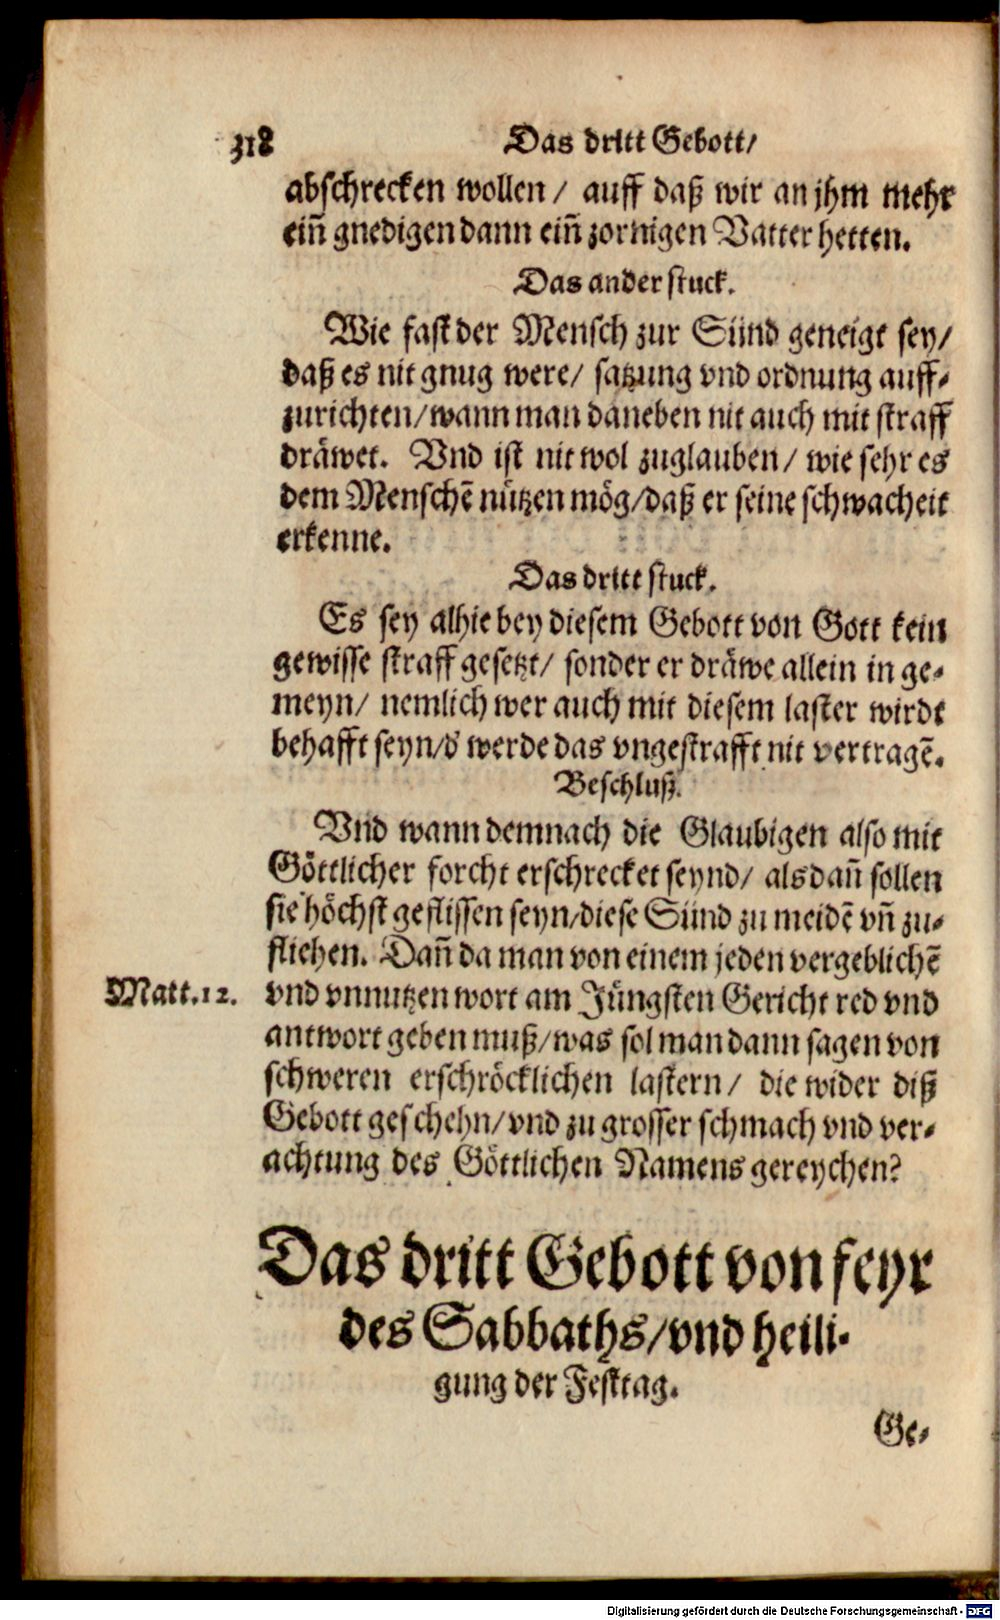 318
Das dritt Gebott/
abschrecken wollen/ auff daß wir an jhm mehr
eiñ gnedigen dann eiñ zornigen Vatter hetten.
Das ander stuck.
Wie fast der Mensch zur Sünd geneigt sey/
daß es nit gnug were/ satzung vnd ordnung auff-
zurichten/wann man daneben nit auch mit straff
dräwet. Vnd ist nit wol zuglauben/ wie sehr es
dem Menschē nützen mög/daß er seine schwacheit
erkenne.
Das dritt stuck.
Es sey alhie bey diesem Gebott von Gott kein
gewisse straff gesetzt/ sonder er dräwe allein in ge-
meyn/ nemlich wer auch mit diesem laster wirdt
behafft seyn/ď werde das vngestrafft nit vertragē.
Beschluß.
Vnd wann demnach die Glaubigen also mit
Göttlicher forcht erschrecket seynd/ alsdañ sollen
sie höchst geflissen seyn/diese Sünd zu meidē vñ zu-
fliehen. Dañ da man von einem jeden vergeblichē
Matt.12.
vnd vnnutzen wort am Jüngsten Gericht red vnd
antwort geben muß/was sol man dann sagen von
schweren erschröcklichen lastern/ die wider diß
Gebott geschehn/vnd zu grosser schmach vnd ver-
achtung des Göttlichen Namens gereychen?
Das dritt Gebott von feyr
des Sabbaths/vnd heili-
gung der Festtag.
Ge-
Digitalisierung gefördert durch die Deutsche Forschungsgemeinschaft - DFG